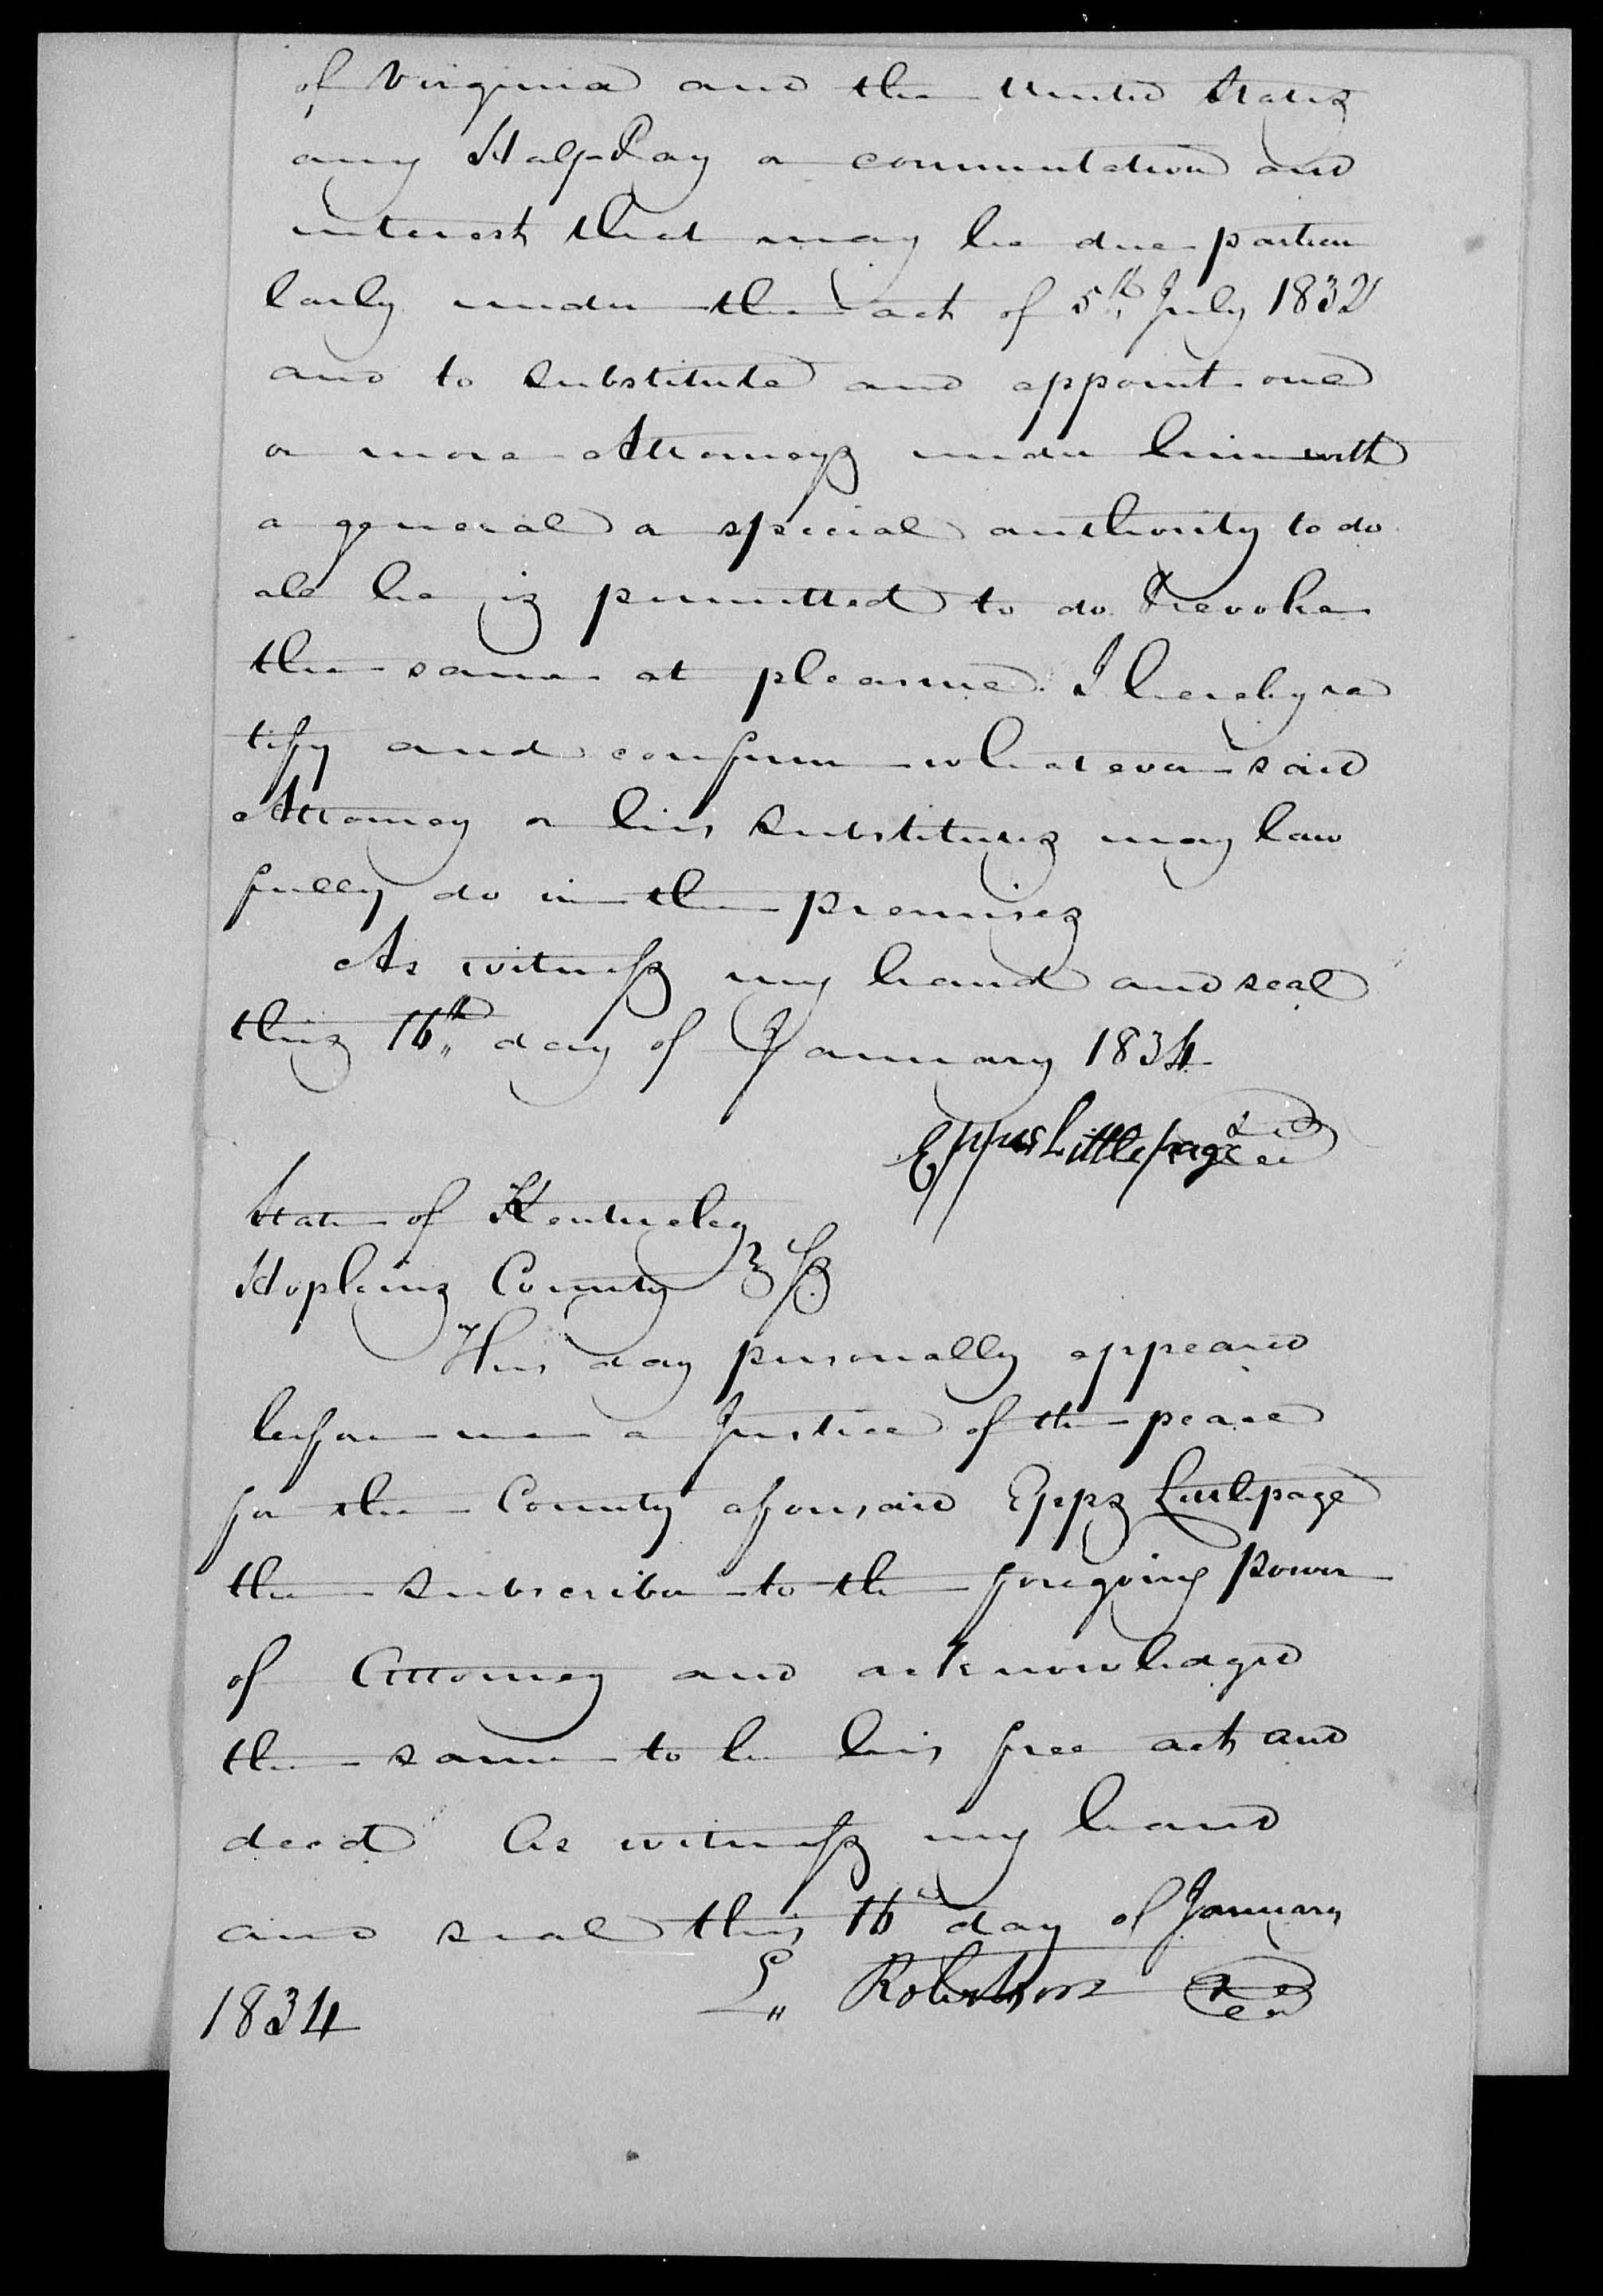 of Virginia and the United States
any Half Pay or commutation and
interest that may be due particu
larly under the act of 5th July 1832
and to substitute and appoint one
or more Attorneys under him with
a general or special authority to do
all he is permitted to do & revoke
the same at pleasure. I hereby ra
tify and confirm whatever said
Attorney or his substitutes may law
fully do in the premises
As witness my hand and seal
this 16th day of January 1834
Eppes Littlepage Seal
State of Kentucky
Hopkins County } ss
This day personally appeared
before me a Justice of the peace
for the County aforesaid Epps Littlepage
the subscriber to the foregoing Power
of Attorney and acknowledged
the same to be his free act and
deed As witness my hand
and seal this 16th day of January
1834 L Robertson Seal